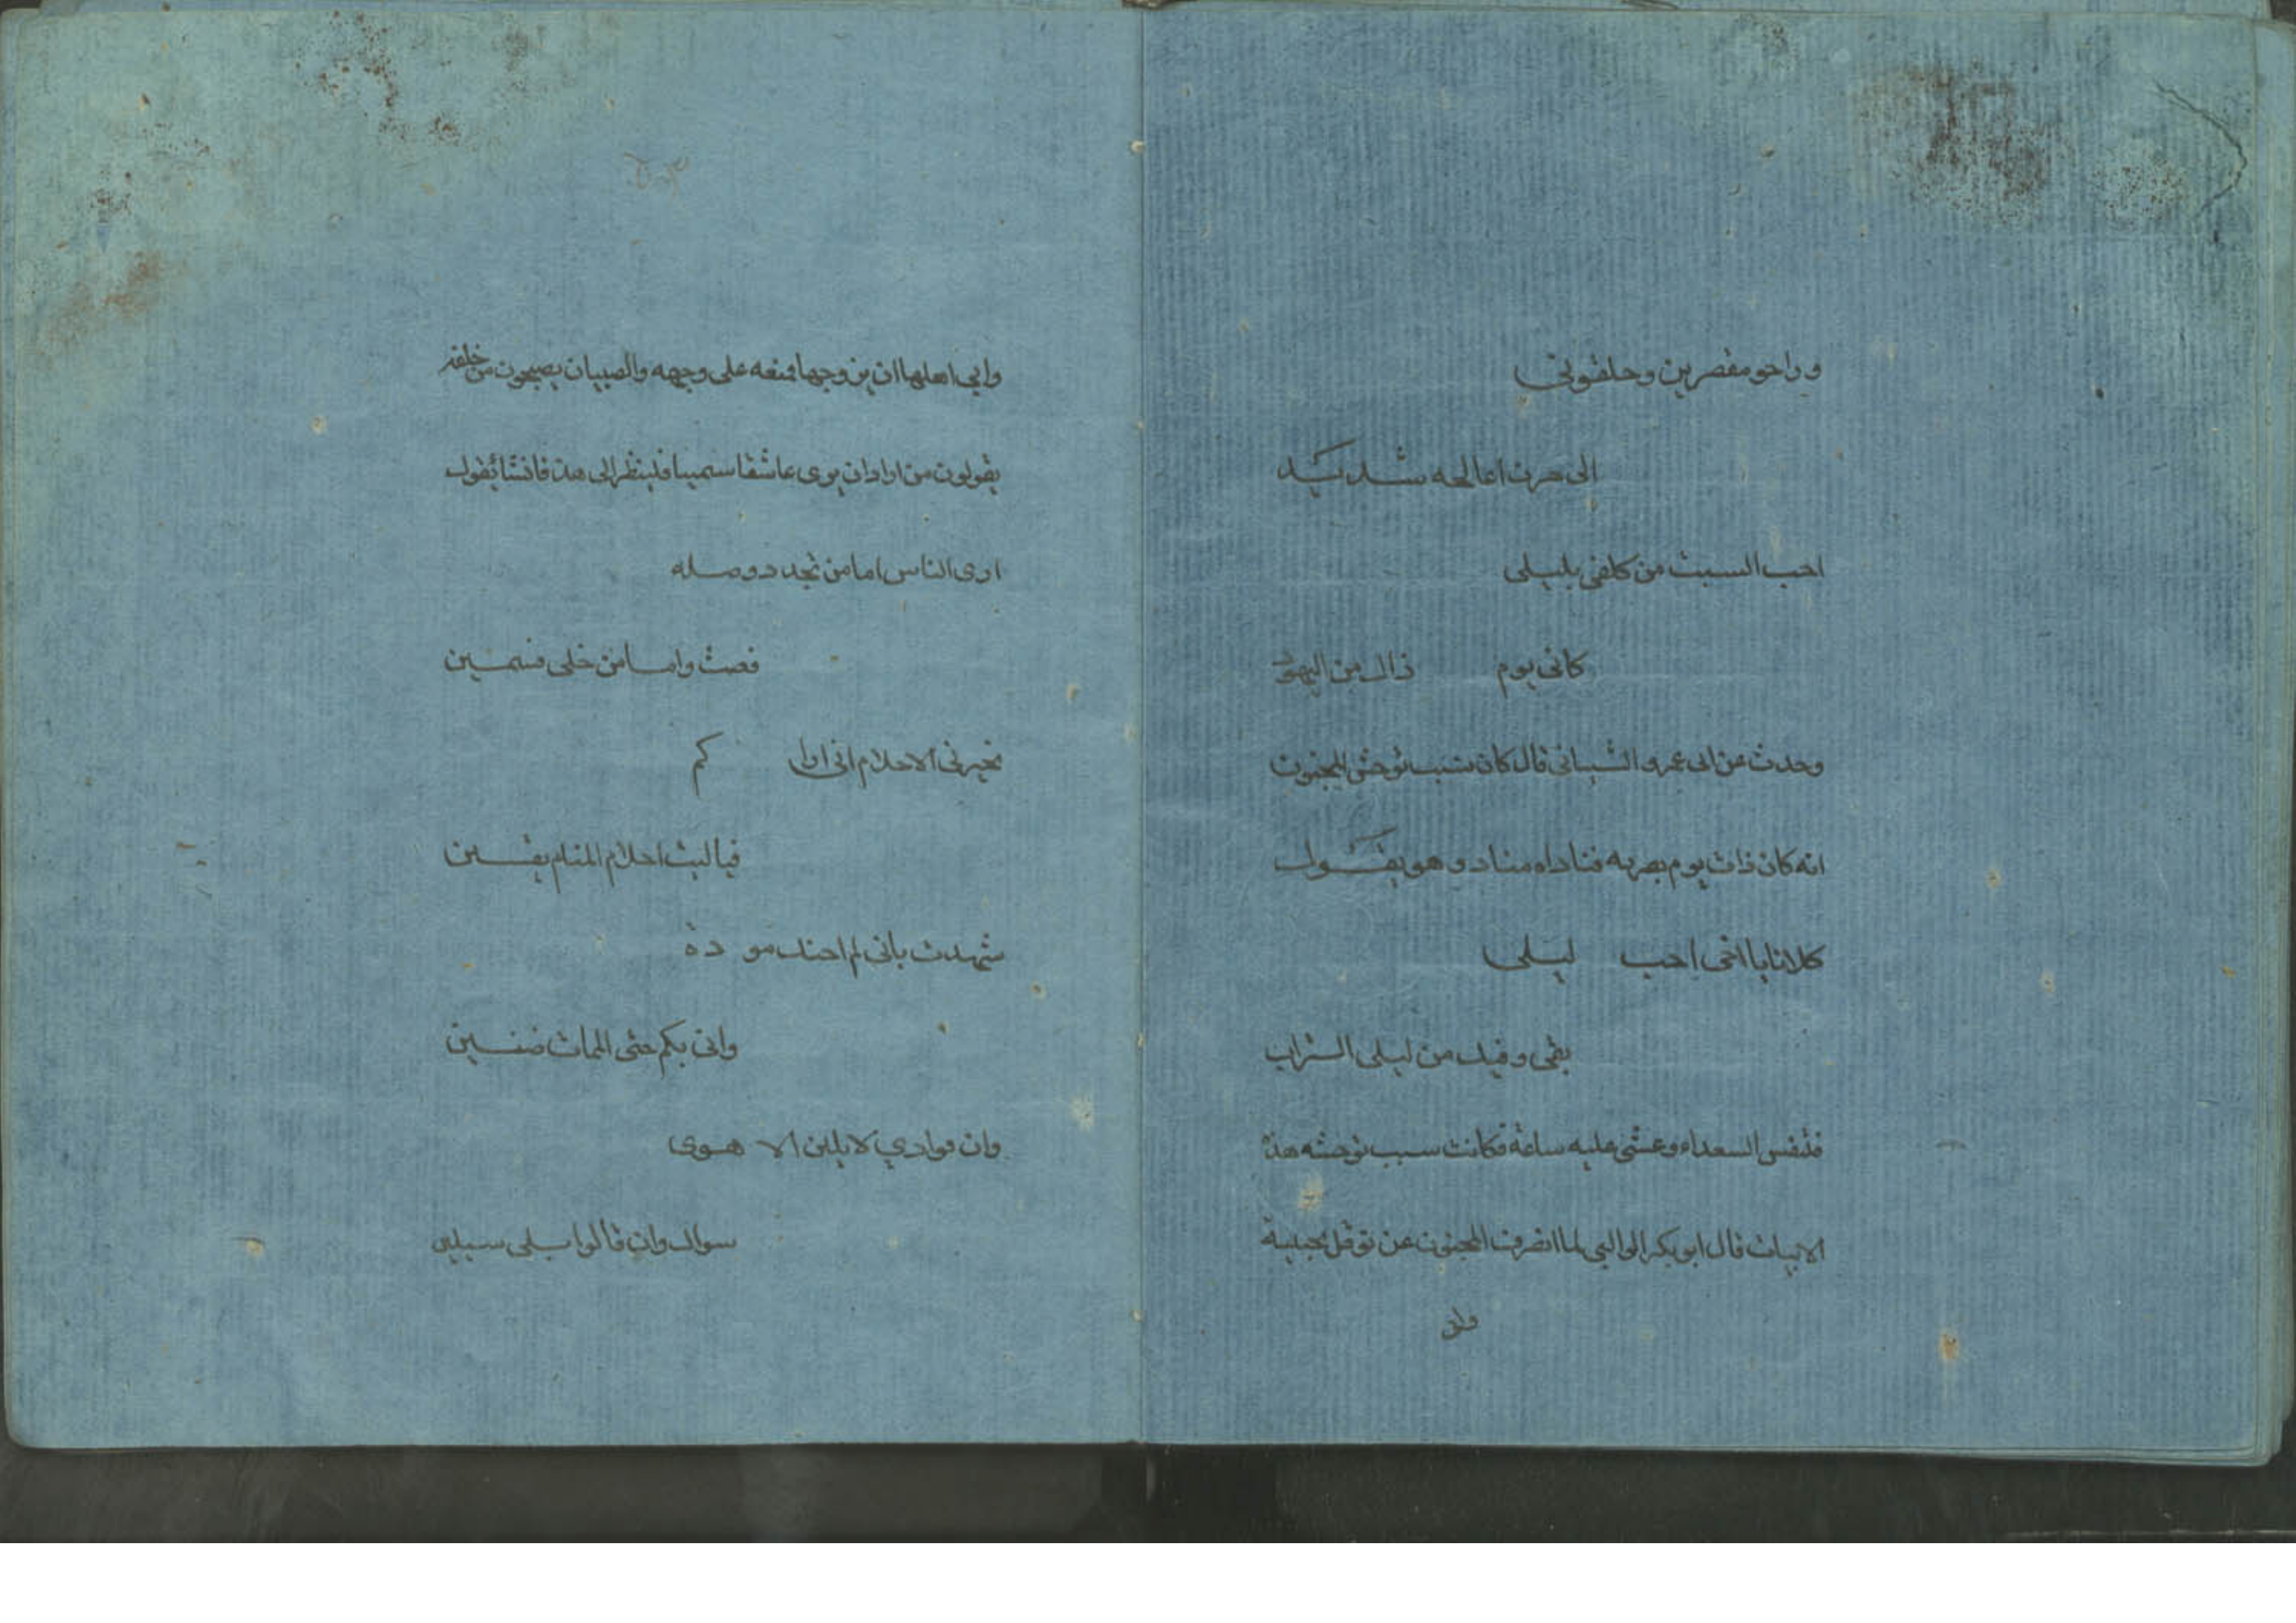 وراحو مقصرين وحلقوني
الى حزن اعالجه شديد
احب السبت من كلفي بليلى
كاني يوم ذاك من اليهود
وحدث عن ابى عمرو الشيبانى قال كان سبب توحش المجنون
انه كان ذات يوم بصربه فناداه مناد وهو يقول
كلانا يا اخى احب ليلى
بفى وفيك من ليلى التراب
فتنفس السعداء وغشى عليه ساعة فكانت سبب توحشه هذه
الابيات قال ابو بكر الوالبي لما انصرف المجنون عن نوفل بخيبة
وابى
وابى اهلها ان يزوجها فمنعه على وجهه والصبيان يصيحون من خلفه
يقولون من اراد ان يرى عاشقا سميا فلينظر الى هذ فانشا يقول
ارى الناس اما من تجدد وصله
فعث واما من خلى فسمين
تخبرنى الاحلام انى اراكم
فيا ليت احلام المنام يقين
شهدت بانى لم احند مو دة
وانى بكم حتى الممات ضنين
وان فوادي لا يلين الا هوى
سواك وان قالوا بلى سيلين